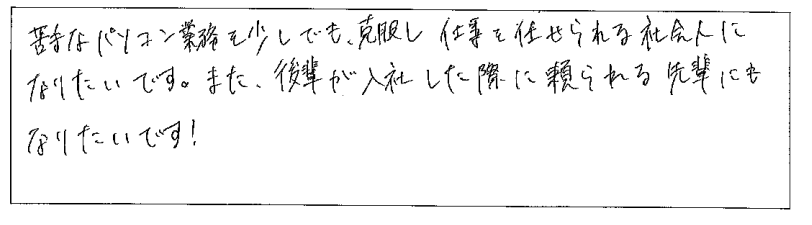 苦手なパソコン業務を少しでも、克服し仕事を任せられる社会人に
なりたいです。また、後輩が入社した際に頼られる先輩にも
なりたいです!